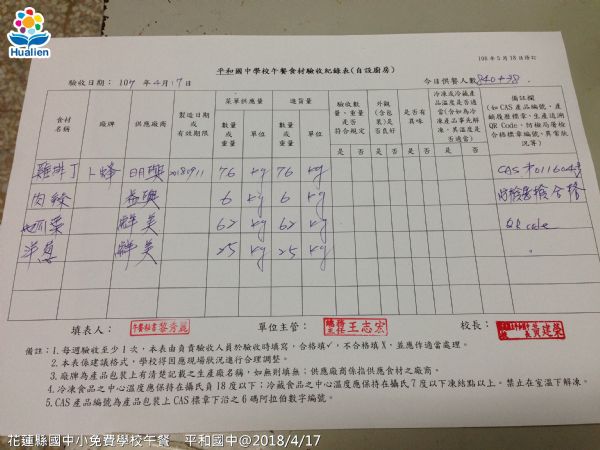 Hualien
106年5月18日修訂
平和國中學校午餐食材驗收紀錄表(自設廚房)
驗收日期：107年4月17日
今日供餐人數840+38
食材名稱 廠牌 供應廠商 製造日期或有效期限 菜單供應量 進貨量 驗收數量、重量是否符合規定 外觀(含包裝)是否良好 是否有異味 冷凍或冷藏產品溫度是否適當(含如為冷凍產品事先解凍，其溫度是否適當) 備註欄(如CAS產品編號、產銷履歷標章、生產追溯QR Code、防檢局屠檢合格標章編號、異常狀況等)
數量或重量 單位 數量或重量 單位 是 否 是 否 是 否 是 否
雞排丁 卜蜂 日興 20180911 76 kg 76 kg CAS #011604
肉絲 益興 6 kg 6 kg 防檢屠檢合格
鮮美 62 kg 62 kg QR code
洋蔥 鮮美 25 kg 25 kg 〃
填表人： 午餐秘書黎秀義 單位主管： 總務主任 王志宏 校長： 黃建榮
備註：1.每週驗收至少1次，本表由負責驗收人員於驗收時填寫，合格填✓，不合格填X，並應作適當處理。
2.本表係建議格式，學校得因應現場狀況進行合理調整。
3.廠牌為產品包裝上有清楚記載之生產廠名稱，如無則填無；供應廠商係指供應食材之廠商。
4.冷凍食品之中心溫度應保持在攝氏負18度以下；冷藏食品之中心溫度應保持在攝氏7度以下凍結點以上。禁止在室溫下解凍。
5.CAS產品編號為產品包裝上CAS標章下沿之6碼阿拉伯數字編號。
花蓮縣國中小免費學校午餐 平和國中@2018/4/17